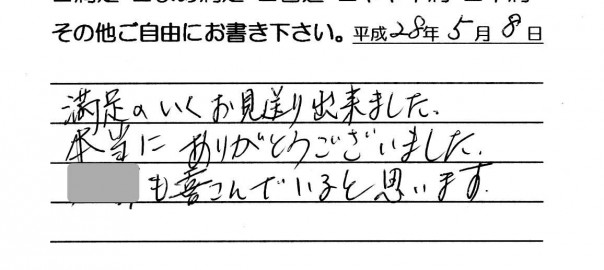 その他ご自由にお書き下さい。平成28年5月8日
満足のいくお見送り出来ました。
本当にありがとうございました。
も喜こんでいると思います。